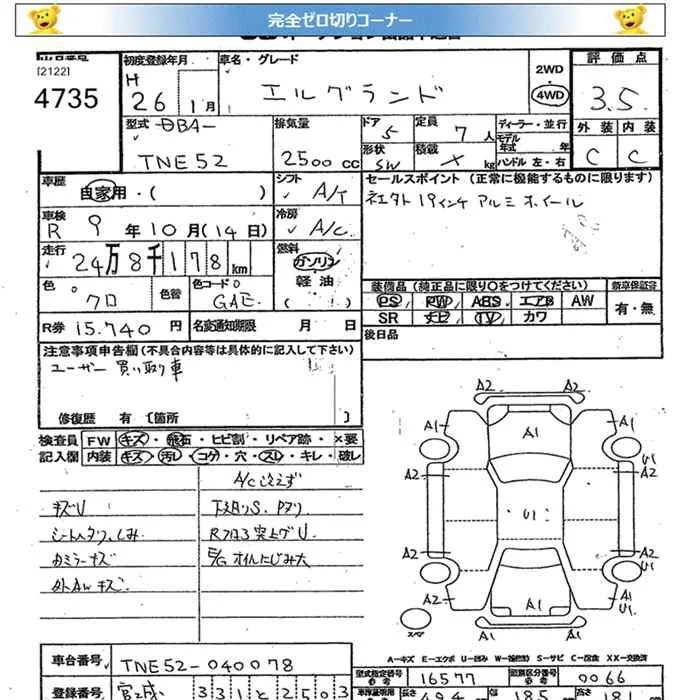 完全ゼロ切りコーナー
[2122]
4735
初度登録年月
H 26 1月
車名・グレード
エルグランド
2WD
4WD
評価点
3.5
外装 内装
C C
型式 DBA-
TNE52
排気量
2500 cc
ドア 5
形状 SW
定員 7 人
積載 × kg
ディーラー・並行
モデル年式 年
ハンドル 左・右
車歴 自家用・( )
シフト A/T
セールスポイント (正常に機能するものに限ります)
19インチ アルミホイール
車検 R 9 年 10 月 (14 日)
冷房 A/C
走行 24万8千178km
燃料 ガソリン
軽油
( )
色 クロ
色替
色コードO GAE
装備品 (純正品に限り○をつけてください)
PS PW ABS エアB AW
SR ナビ TV カワ
新車保証書
有・無
R券 15.740 円
名変通知期限 月 日
後日品
注意事項申告欄 (不具合内容等は具体的に記入して下さい)
ユーザー買い取り車
修復歴 有 〔箇所 〕
検査員記入欄
FW キズ・飛石・ヒビ割・リペア跡・×要
内装 キズ・汚レ・コゲ・穴・スレ・キレ・破レ
A/C冷えず
キズU
下廻りS、Pヌリ
シートスタワ、しみ
Rフロア突上ゲU
カミラーキズ
E/G オイルにじみ大
外AWキズ
A2 A2
A1 A1 A1
U1
A2 A2
U1
A2 A2
U1
A2 A1 A1
U1
A2 A2
スペア
A-キズ E-エクボ U-凹み W-補修跡 S-サビ C-腐食 XX-交換済
車台番号 TNE52-040078
型式指定番号 参考 16577
類別区分番号 参考 0066
登録番号 宮城 331と2503